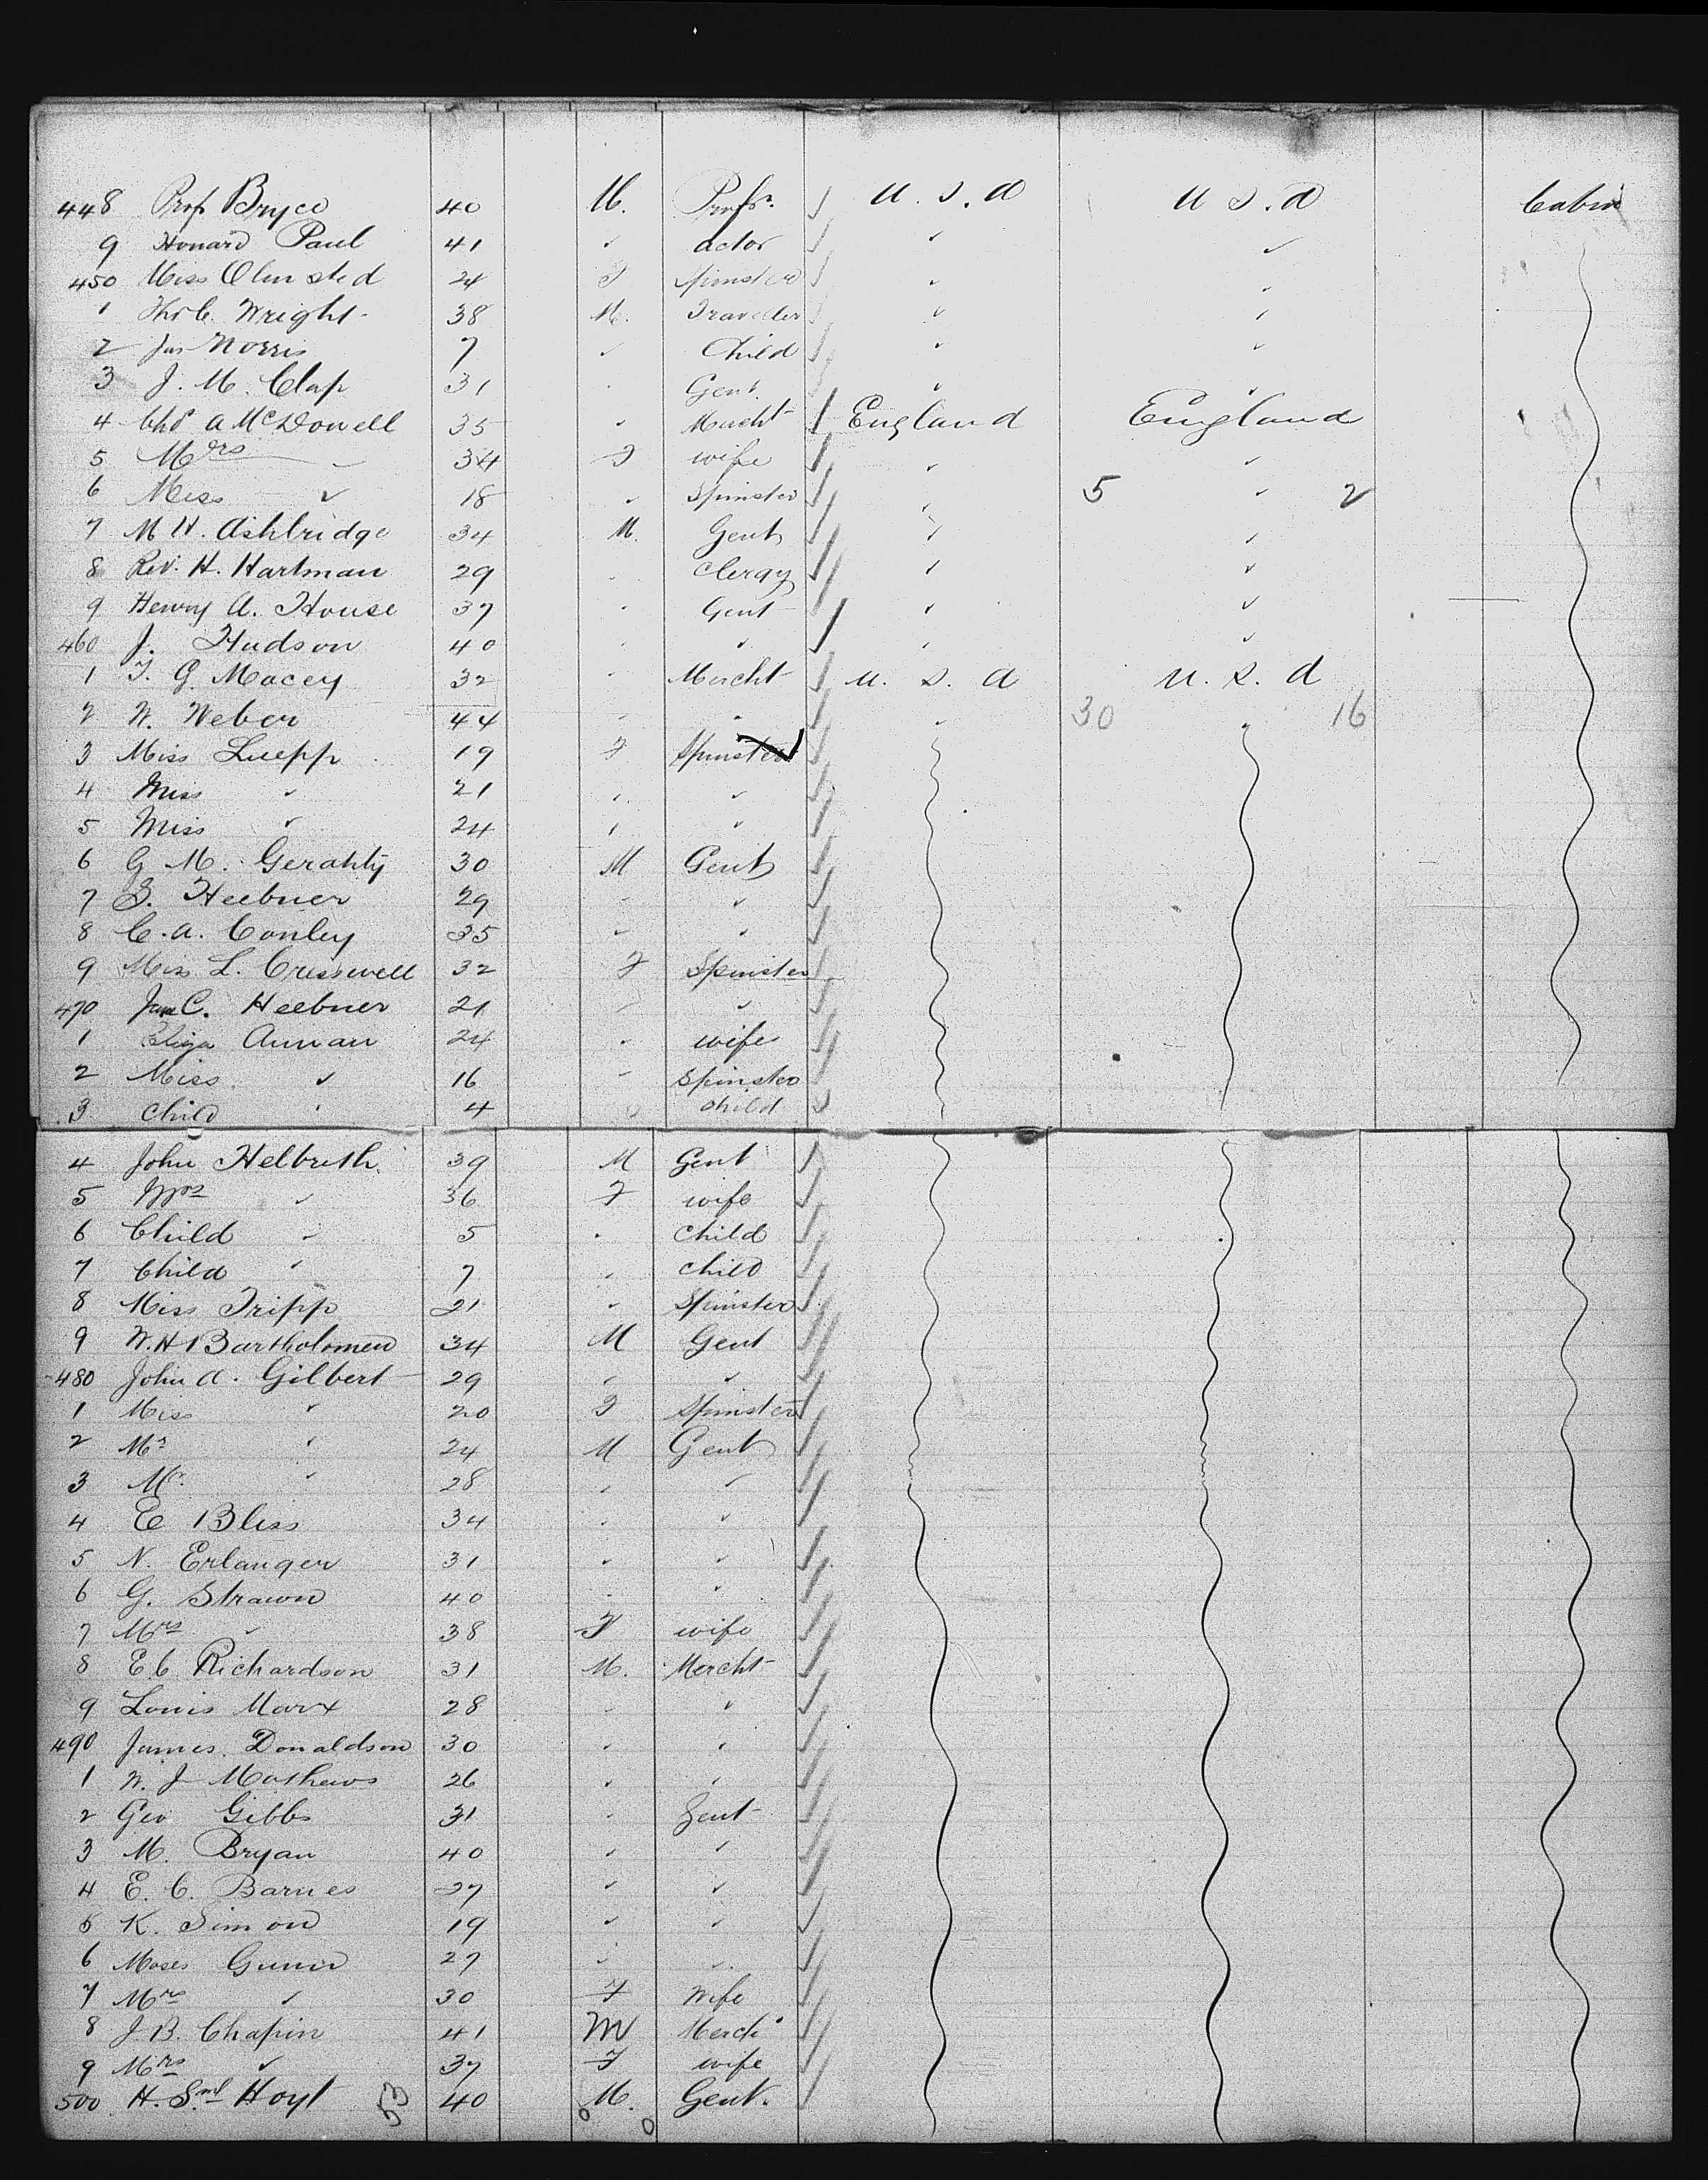 448 Prof Bryce 40 M. Profr. U.S.A U S.A Cabin
9 Howard Paul 41 ✓ actor ✓ ✓
450 Miss Olmsted 24 F Spinster " "
1 Wright 38 M. Traveller " "
2 Jas Norris 7 ✓ Child " "
3 J. M. Clap 31 " Gent. " "
4 Chs A McDowell 35 " Mercht England England
5 Mrs " 34 F wife " "
6 Miss " 18 " Spinster " 5 " 2
7 M H. Ashbridge 34 M. Gent " "
8 Rev. H. Hartman 29 " Clergy " "
9 Henry A. House 37 " Gent " "
460 J. Hudson 40 " " " "
1 T. G. Macey 32 " Mercht U. S. A U. S. A
2 W. Weber 44 " " " 30 " 16
3 Miss Luepp 19 F Spinster
4 Miss " 21 " "
5 Miss " 24 " "
6 G M. Gerahty 30 M Gent
7 S. Heebner 29 " "
8 C. A. Conley 35 " "
9 Miss L. Cresswell 32 F Spinster
470 C. Heebner 21 " "
1 Eliza Annan 24 " wife
2 Miss " 16 " Spinster
3 Child " 4 " child
4 John Helbreth 39 M Gent
5 Mrs " 36 F wife
6 Child " 5 " Child
7 Child " 7 " Child
8 Miss Tripp 21 " Spinster
9 W. H Bartholomew 34 M Gent
480 John A. Gilbert 29 " "
1 Miss " 20 F Spinster
2 Mr " 24 M Gent
3 Mr " 28 " "
4 E Bliss 34 " "
5 N. Erlanger 31 " "
6 G. Strawn 40 " "
7 Mrs " 38 F wife
8 E. C. Richardson 31 M. Mercht
9 Louis Marx 28 " "
490 James Donaldson 30 " "
1 W. J Mathews 26 " "
2 Geo Gibbs 31 " Gent
3 M. Bryan 40 " "
4 E. C. Barnes 27 " "
5 K. Simon 19 " "
6 Moses Gunn 27 " "
7 Mrs " 30 F Wife
8 J. B. Chapin 41 M Merch
9 Mrs " 37 F wife
500 H. Sml Hoyt 53 40 M. Gent.